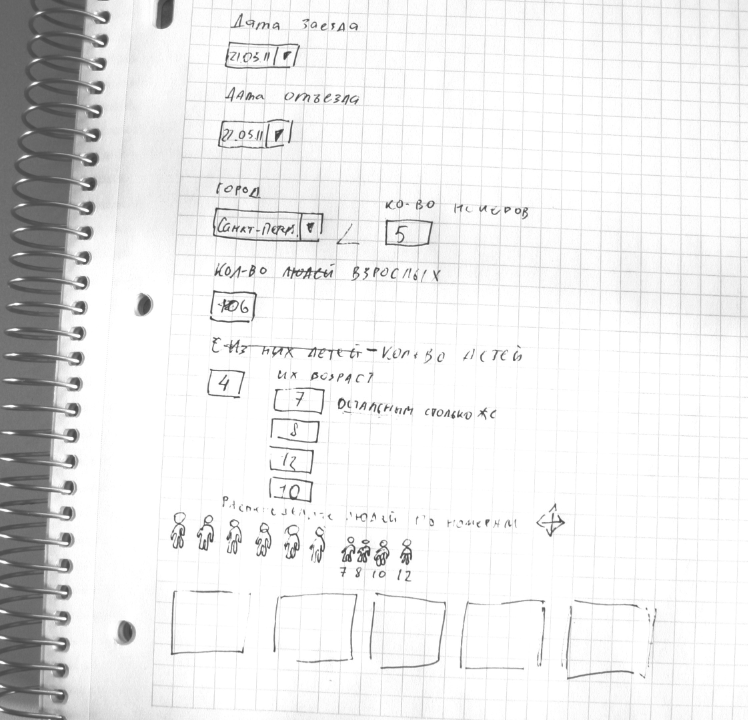 Дата заезда
21.03.11
Дата отъезда
27.03.11
ГОРОД
КО-ВО НОМЕРОВ
Санкт-Петер.
5
КОЛ-ВО ЛЮДЕЙ ВЗРОСЛЫХ
6
ИЗ НИХ ДЕТЕЙ - КОЛ-ВО ДЕТЕЙ
4
ИХ ВОЗРАСТ
7
ОСТАЛЬНЫМ СКОЛЬКО ЖЕ
8
12
10
ЛЮДЕЙ ПО НОМЕРАМ
7 8 10 12